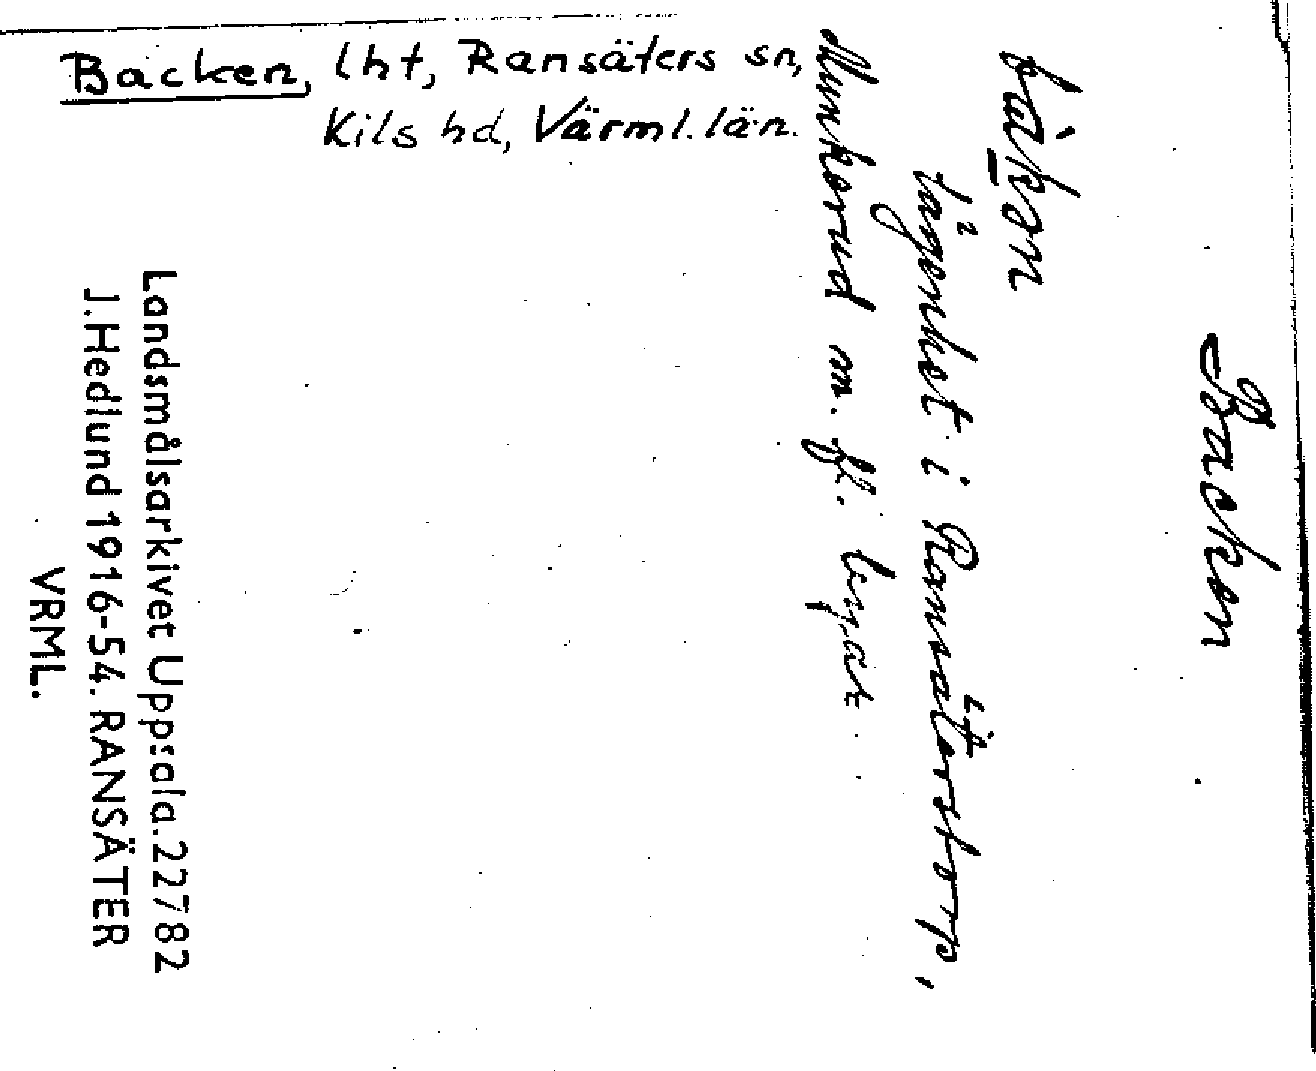 Backen, lht, Ransäters sn,
Kils hd, Värml. län.
Backen
bàkən
lägenhet i Ransäterstorp,
Munkerud m. fl. byar.
Landsmålsarkivet Uppsala. 22782
J. Hedlund 1916-54. RANSÄTER
VRML.